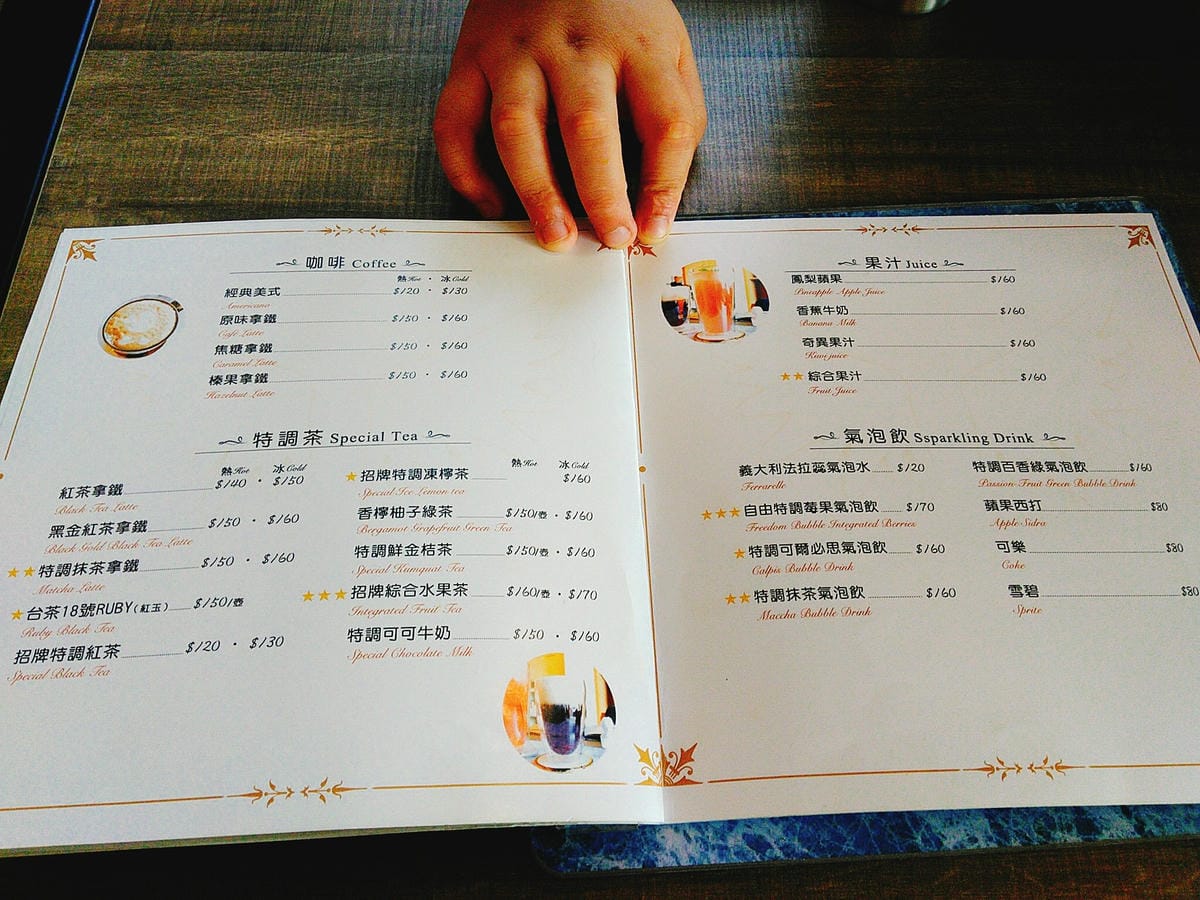 咖啡 Coffee
熱Hot ・ 冰Cold
經典美式 $120 ・ $130
Americano
原味拿鐵 $150 ・ $160
Café Latte
焦糖拿鐵 $150 ・ $160
Caramel Latte
榛果拿鐵 $150 ・ $160
Hazelnut Latte
特調茶 Special Tea
熱Hot 冰Cold
紅茶拿鐵 $140 ・ $150
Black Tea Latte
黑金紅茶拿鐵 $150 ・ $160
Black Gold Black Tea Latte
★★特調抹茶拿鐵 $150 ・ $160
Matcha Latte
★台茶18號RUBY(紅玉) $150/壺
Ruby Black Tea
招牌特調紅茶 $120 ・ $130
Special Black Tea
熱Hot 冰Cold
★招牌特調凍檸茶 $160
Special Ice Lemon tea
香檸柚子綠茶 $150/壺 ・ $160
Bergamot Grapefruit Green Tea
特調鮮金桔茶 $150/壺 ・ $160
Special Kumquat Tea
★★★招牌綜合水果茶 $160/壺 ・ $170
Integrated Fruit Tea
特調可可牛奶 $150 ・ $160
Special Chocolate Milk
果汁 Juice
鳳梨蘋果 $160
Pineapple Apple Juice
香蕉牛奶 $160
Banana Milk
奇異果汁 $160
Kiwi juice
★★綜合果汁 $160
Fruit Juice
氣泡飲 Ssparkling Drink
義大利法拉蕊氣泡水 $120
Ferrarelle
★★★自由特調莓果氣泡飲 $170
Freedom Bubble Integrated Berries
★特調可爾必思氣泡飲 $160
Calpis Bubble Drink
★★特調抹茶氣泡飲 $160
Maccha Bubble Drink
特調百香綠氣泡飲 $160
Passion-Fruit Green Bubble Drink
蘋果西打 $80
Apple Sidra
可樂 $80
Coke
雪碧 $80
Sprite